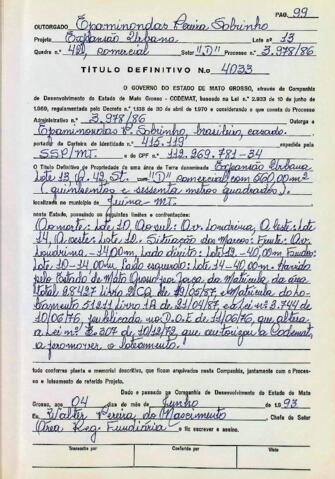 PAG. 99
OUTORGADO Epaminondas Pereira Sobrinho
Projeto Expansão Urbana Lote nº 13
Quadra nº 42, comercial Setor "D" Processo nº 3.978/86
TÍTULO DEFINITIVO N.o 4033
O GOVERNO DO ESTADO DE MATO GROSSO, através da Companhia
de Desenvolvimento do Estado de Mato Grosso - CODEMAT, baseado na Lei n.º 2.933 de 10 de junho de
1.969, regulamentada pelo Decreto n.º 1.138 de 30 de abril de 1970 e considerando o que consta do Processo
Administrativo n.º 3.978/86 Outorga a
Epaminondas P. Sobrinho, brasileiro, casado.
portador da Carteira de Identidade n.º 415.119
SSP/MT. e do CPF n.º 112.969.781-34
O Título Definitivo de Propriedade de uma área de Terra denominada Expansão Urbana
Lote 13, Q. 42, St. "D" comercial, com 560,00m²
(quinhentos e sessenta metros quadrados).
localizada no município de Juina-MT.
neste Estado, possuindo os seguintes limites e confrontações:
Ao norte: Lote 10, Ao sul: Av. Londrina, A leste: Lote
14, A oeste: Lote 12. Situação dos Marcos: Frente: Av.
Londrina - 14,00m, Lado direito: Lote 12 - 40,00m Fundo:
Lote 10 - 14,00m Lado esquerdo: Lote 14 - 40,00m. Havido
pelo Estado de Mato Grosso por força da Matrícula da área
total 08427 Livro 2/CA de 19/05/87, e Matrícula do Lo-
teamento 51211 Livro 1A de 21/04/87, ex Lei nº 3.744 de
10/06/76, publicada no D.O.E de 11/06/76, que altera
a Lei nº 3.307 de 10/12/72, que autorizou a Codemat,
a promover, o loteamento.
tudo conforme planta e memorial descritivo, que ficam arquivados nesta Companhia, juntamente com o Proces-
so e loteamento do referido Projeto.
Dado e passado na Companhia de Desenvolvimento do Estado de Mato
Grosso, aos 04 dias do mês de Junho de 1.993
Eu, Walter Pereira do Nascimento Chefe do Setor
Área Reg. Fundiária fiz escrever e assino.
Transcrito por Conferido por Visto